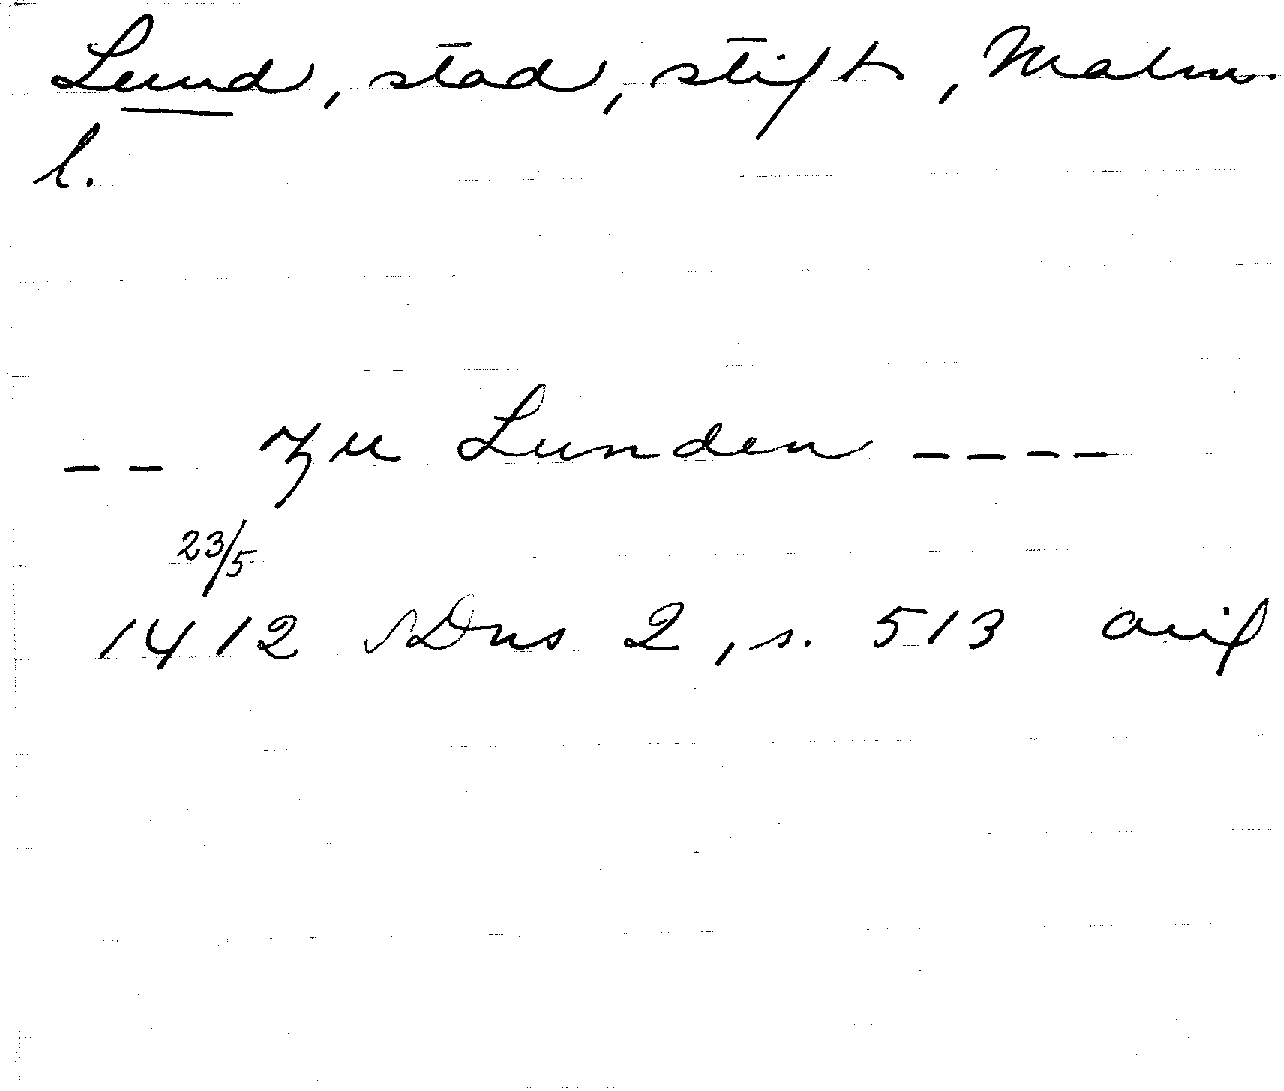 Lund, stad, stift, Malm.
l.
-- zu Lunden ----
23/5
1412 SDns 2, s. 513 avif